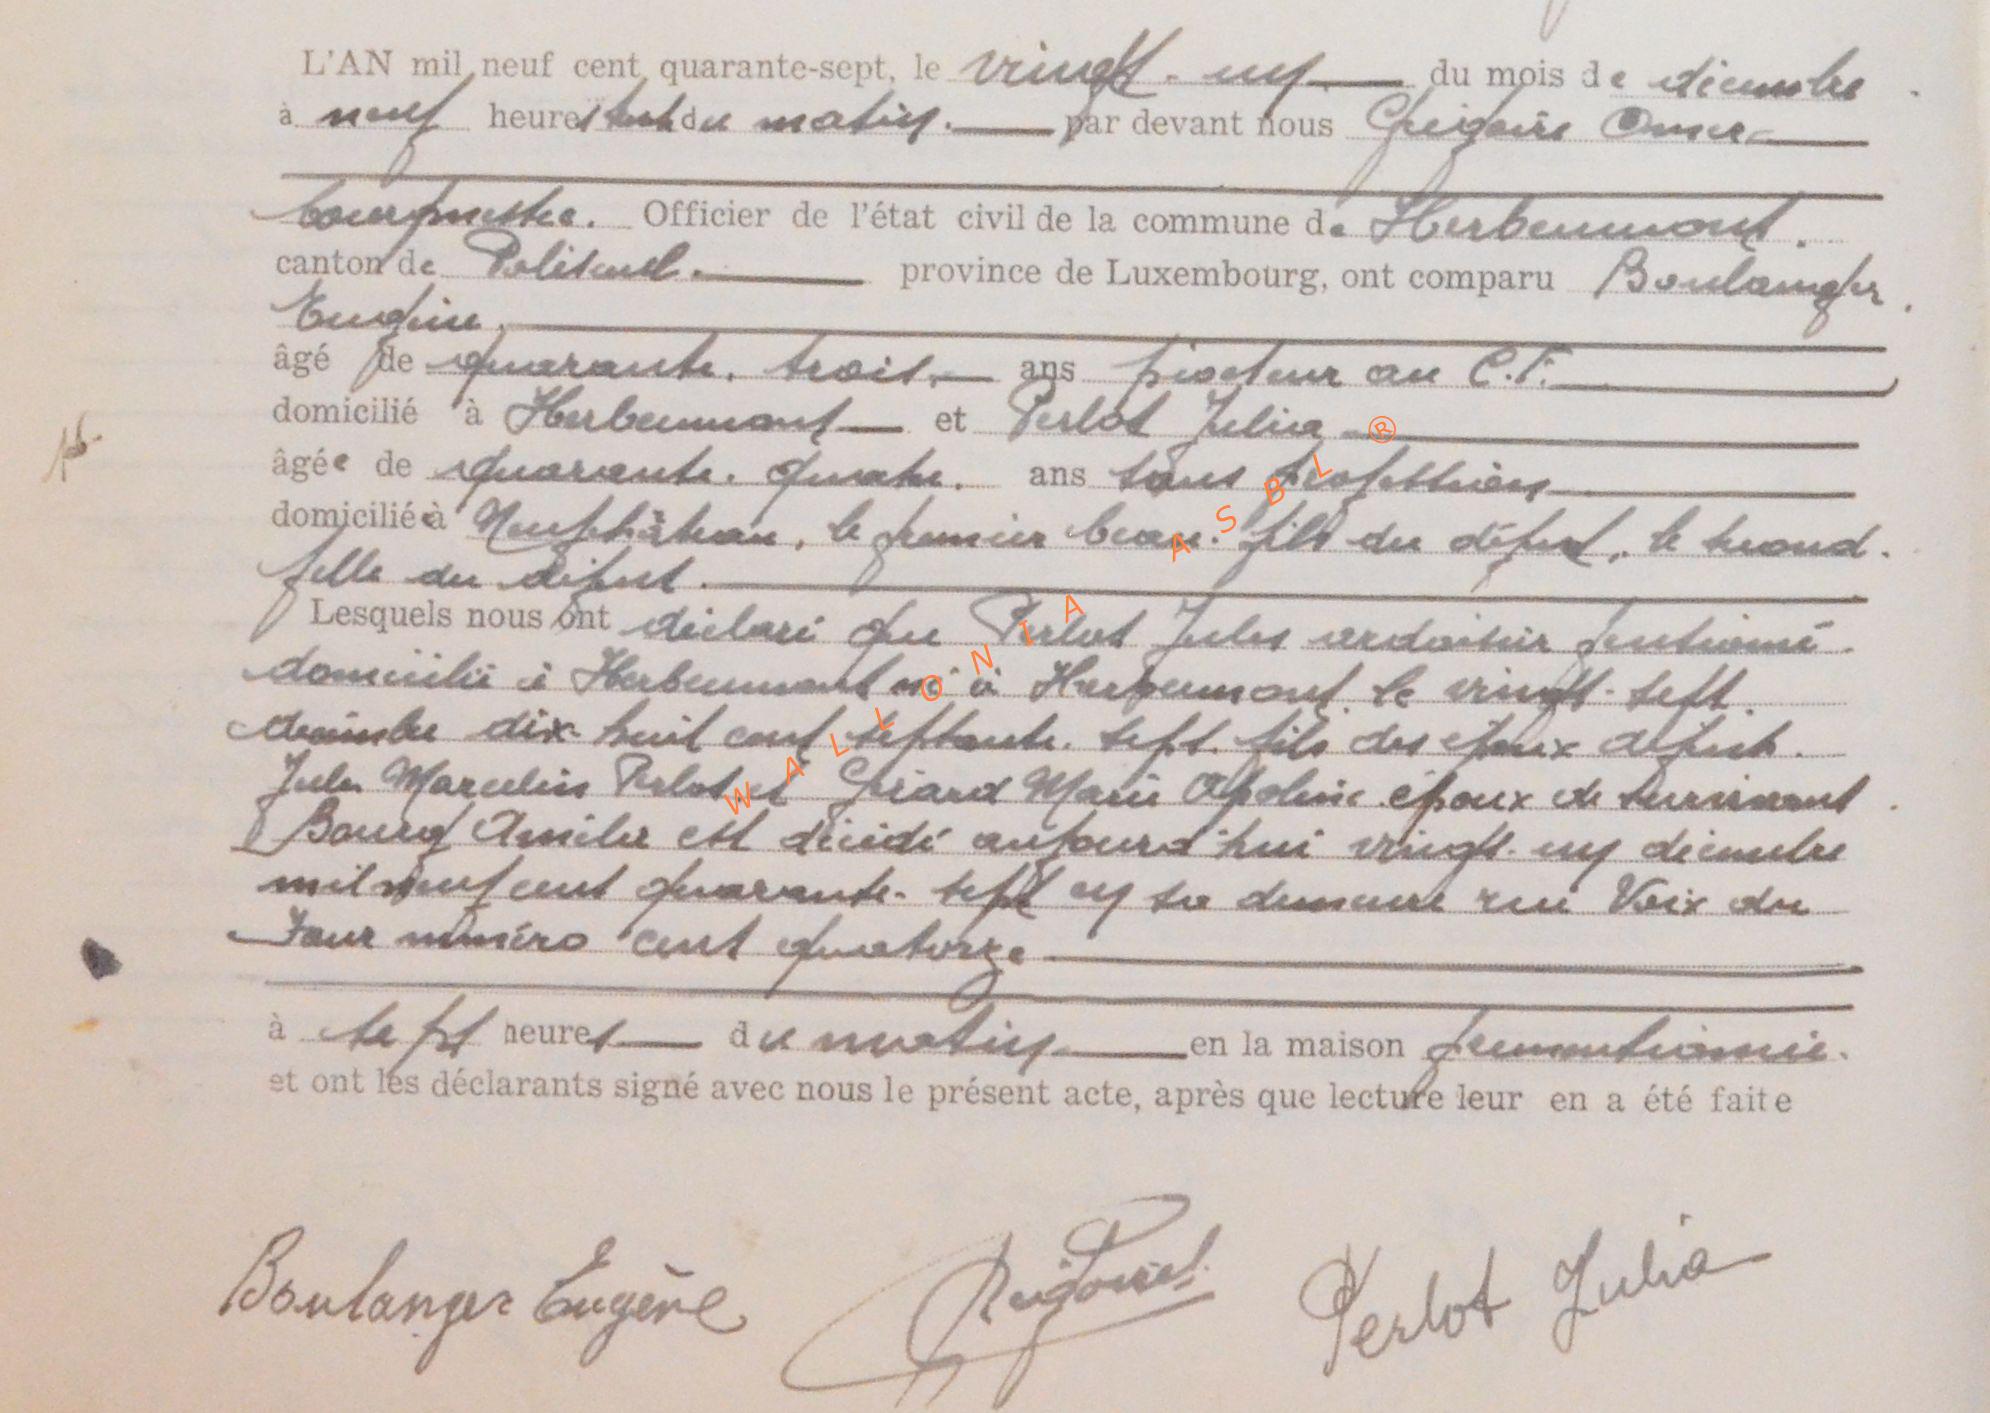 L'AN mil neuf cent quarante-sept, le vingt-un du mois de décembre
à neuf heures du matin. par devant nous Grégoire Omer
bourgmestre. Officier de l'état civil de la commune de Herbeumont.
canton de Paliseul. province de Luxembourg, ont comparu Boulanger
Eugène.
âgé de quarante-trois. ans piocheur au C.F.
domicilié à Herbeumont et Perlot Julia
âgée de quarante-quatre. ans sans profession
domiciliée à Neufchâteau, le premier beau-fils du défunt, le second.
fille du défunt.
Lesquels nous ont déclaré que Perlot Jules ardoisier pensionné.
domicilié à Herbeumont né à Herbeumont le vingt-sept
décembre dix-huit cent septante-sept. fils des époux défunts.
Jules Marcelin Perlot et Gérard Marie Apoline. époux de survivant
Bourg Amélie est décédé aujourd'hui vingt-un décembre
mil neuf cent quarante-sept en sa demeure rue Voix du
Four numéro cent quatorze
à sept heures du matin en la maison prémentionnée.
et ont les déclarants signé avec nous le présent acte, après que lecture leur en a été faite
Boulanger Eugène Perlot Julia
WALLONIA ASBL ®